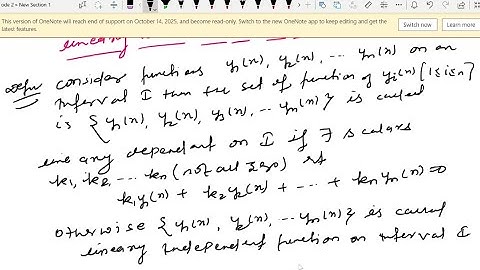 ode 2 » New Section 1
This version of OneNote will reach end of support on October 14, 2025, and become read-only. Switch to the new OneNote app to keep editing and get the latest features.
Switch now
Learn more
Defn consider functions y₁(x), y₂(x), ... yₙ(x) on an
Interval I then the set of function of yᵢ(x) [1≤i≤n]
is { y₁(x), y₂(x), y₃(x), ... yₙ(x)} is called
linearly dependent on I if ∃ scalars
k₁, k₂, ... kₙ (not all zero) st
k₁y₁(x) + k₂y₂(x) + ... + kₙyₙ(x) = 0
otherwise { y₁(x), y₂(x), ... yₙ(x)} is called
linearly independent function on interval I